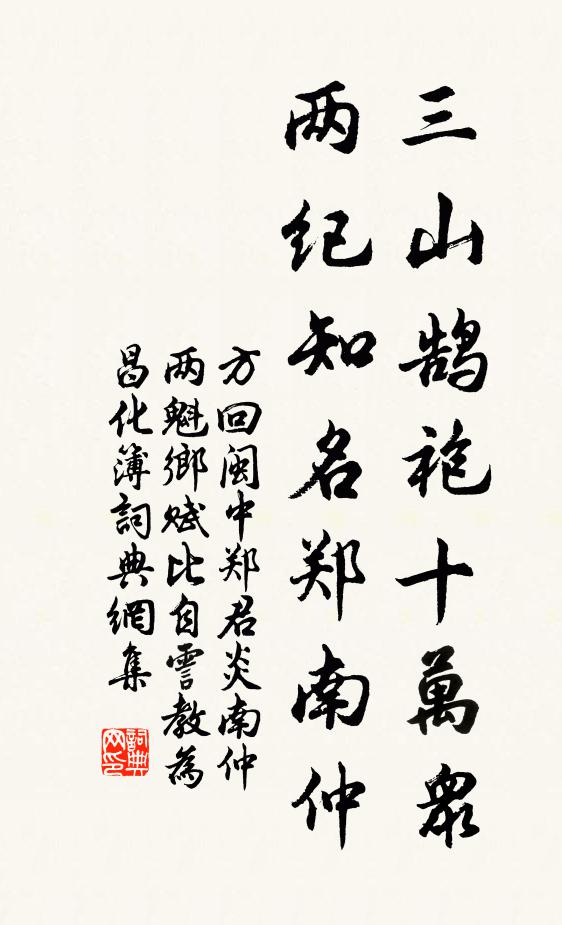 三山鹄袍十萬衆
两纪知名郑南仲
方回闽中郑君炎南仲
两魁鄉赋比自霅教為
昌化簿詞典網集
詞典网印